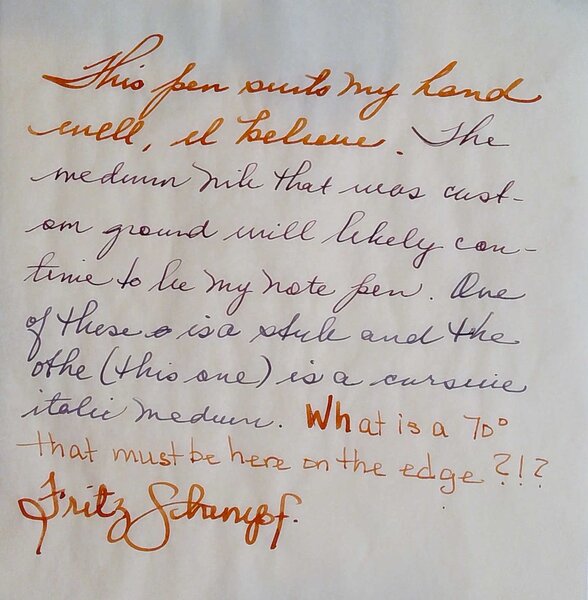 This pen suits my hand
well, I believe. The
medium nib that was cust-
om ground will likely con-
tinue to be my note pen. One
of these is a stub and the
othe (this one) is a cursive
italic medium. What is a 70°
that must be here on the edge ?!?
Fritz Schimpf.